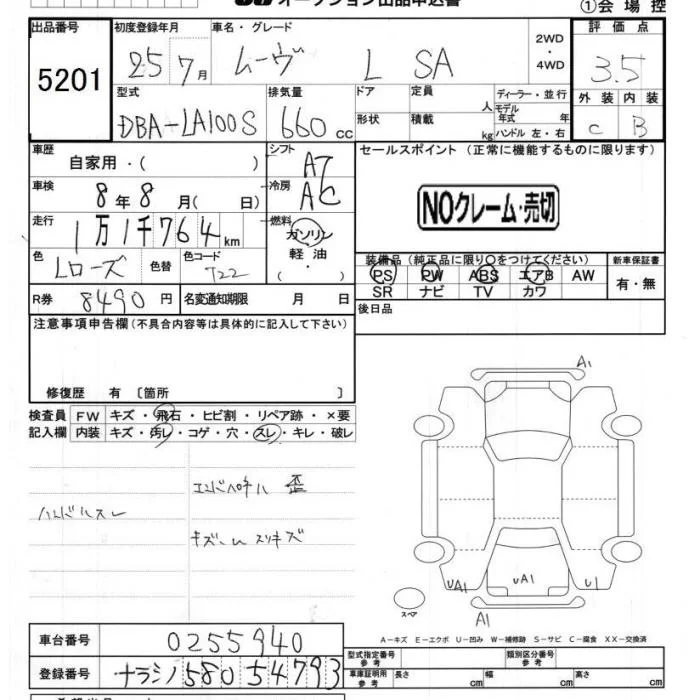 オークション出品申込書
①会場控
出品番号 初度登録年月 車名・グレード 評価点
5201 25 7月 ムーヴ L SA 2WD ・ 4WD 3.5
型式 排気量 ドア 定員 人 ディーラー・並行 外装 内装
DBA-LA100S 660 cc 形状 積載 kg モデル年式 年 C B
ハンドル 左・右
車歴 自家用・( ) シフト A7 セールスポイント (正常に機能するものに限ります)
車検 8年8月( 日) 冷房 AC
NOクレーム・売切
走行 1万1千764km 燃料 ガソリン
軽油
・( )
色 Lローズ 色替 色コード T22 装備品(純正品に限り○をつけてください) 新車保証書
PS PW ABS エアB AW 有・無
SR ナビ TV カワ
R券 8490円 名変通知期限 月 日 後日品
注意事項申告欄(不具合内容等は具体的に記入して下さい)
修復歴 有 〔箇所 〕
検査員 FW キズ・飛石・ヒビ割・リペア跡・×要
記入欄 内装 キズ・汚レ・コゲ・穴・スレ・キレ・破レ
A1
エンドパネル 歪
ハンドルスレ
キズ
スリキズ
UA1 UA1 U1
スペア
A1
A-キズ E-エクボ U-凹み W-補修跡 S-サビ C-腐食 XX-交換済
車台番号 0255940 型式指定番号 参考 類別区分番号 参考
登録番号 ナラシノ580 5 4793 車庫証明用 参考 長さ cm 幅 cm 高さ cm